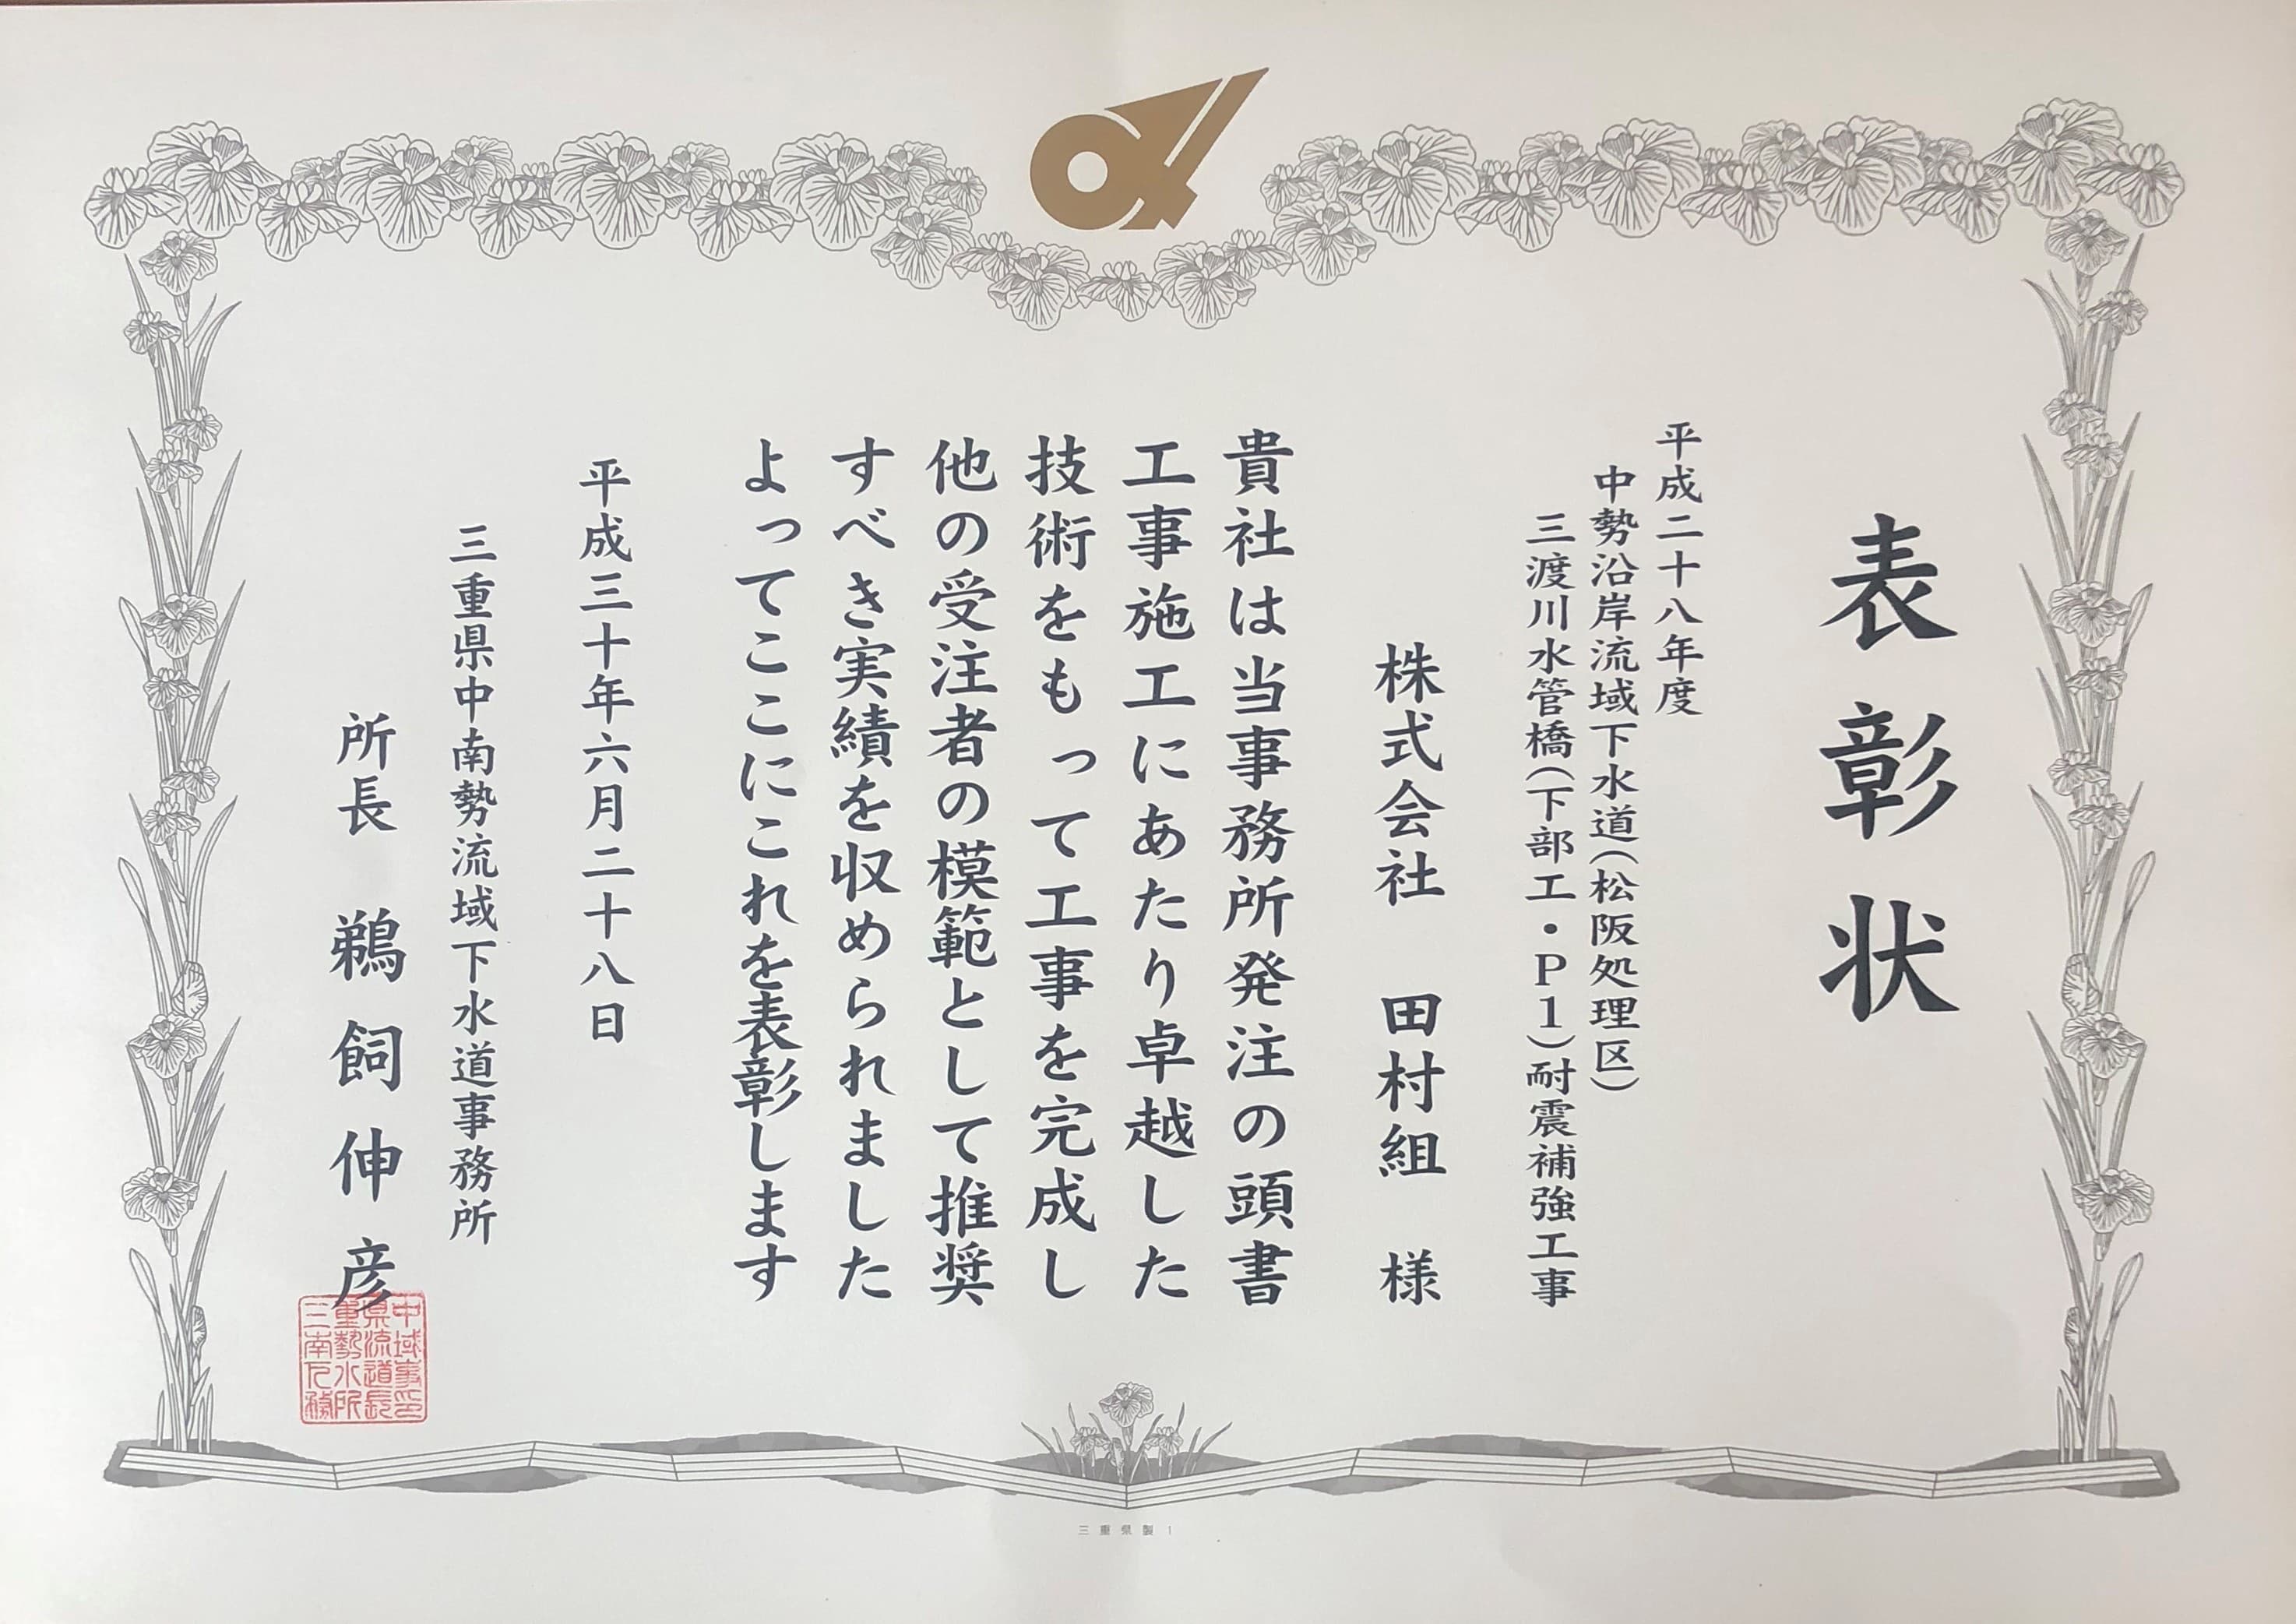 表彰状
平成二十八年度
中勢沿岸流域下水道(松阪処理区)
三渡川水管橋(下部工・P1)耐震補強工事
株式会社 田村組 様
貴社は当事務所発注の頭書
工事施工にあたり卓越した
技術をもって工事を完成し
他の受注者の模範として推奨
すべき実績を収められました
よってここにこれを表彰します
平成三十年六月二十八日
三重県中南勢流域下水道事務所
所長 鵜飼伸彦
中域事印
県流道長
重勢水所
三南下務
三重県製1